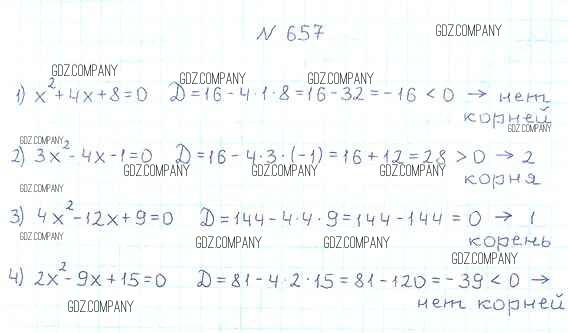 № 657
GDZ.COMPANY
GDZ.COMPANY
GDZ.COMPANY GDZ.COMPANY
1) x²+4x+8=0 D=16-4·1·8=16-32=-16<0 → нет
корней
GDZ.COMPANY
GDZ.COMPANY
2) 3x²-4x-1=0 D=16-4·3·(-1)=16+12=28>0 → 2
GDZ.COMPANY GDZ.COMPANY GDZ.COMPANY
корня
GDZ.COMPANY
3) 4x²-12x+9=0 D=144-4·4·9=144-144=0 → 1
GDZ.COMPANY
корень
GDZ.COMPANY GDZ.COMPANY
GDZ.COMPANY
4) 2x²-9x+15=0 D=81-4·2·15=81-120=-39<0 →
нет корней
GDZ.COMPANY